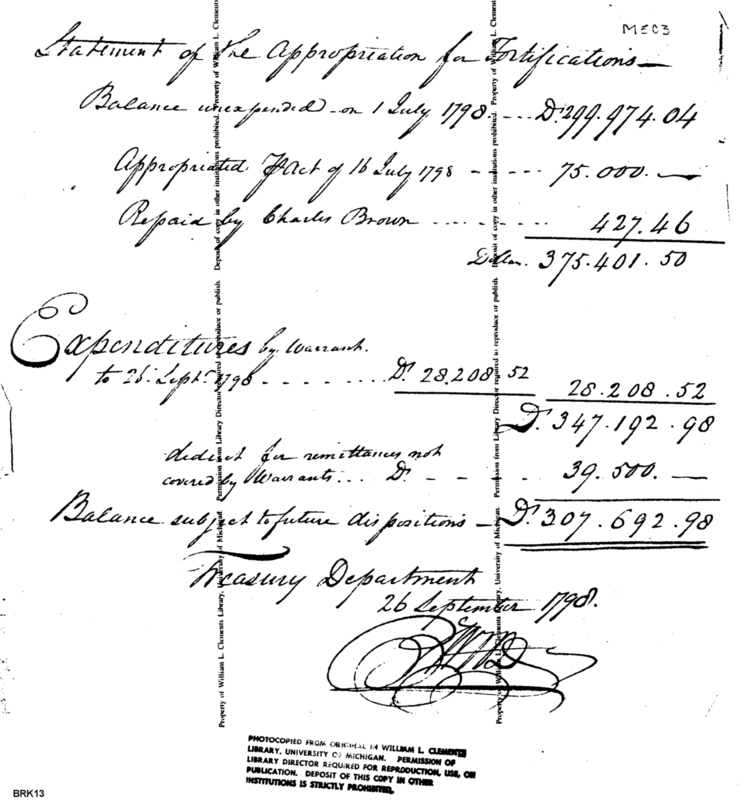 MEC3
Statement of the Appropriation for Fortifications —
Balance unexpended on 1 July 1798 .... Dr 299.974.04
Appropriated ⅌ Act of 16 July 1798 - - - - - 75.000. —
Repaid by Charles Brown ......... 427.46
Dollars. 375.401.50
Expenditures by Warrants.
to 26. Septr. 1798 - - - - - - - Dr. 28.208.52 28.208.52
Dr. 347.192.98
deduct for remittances not
covered by Warrants... Dr. - - - 39.500. —
Balance subject to future dispositions — Dr. 307.692.98
Treasury Department
26 September 1798.
Property of William L. Clements Library, University of Michigan. Permission from Library Director required to reproduce or publish. Deposit of copy in other institutions prohibited. Property of William L. Clements
Property of William L. Clements Library, University of Michigan. Permission from Library Director required to reproduce or publish. Deposit of copy in other institutions prohibited. Property of William L. Clements
PHOTOCOPIED FROM ORIGINAL IN WILLIAM L. CLEMENTS
LIBRARY, UNIVERSITY OF MICHIGAN. PERMISSION OF
LIBRARY DIRECTOR REQUIRED FOR REPRODUCTION, USE, OR
PUBLICATION. DEPOSIT OF THIS COPY IN OTHER
INSTITUTIONS IS STRICTLY PROHIBITED.
BRK13